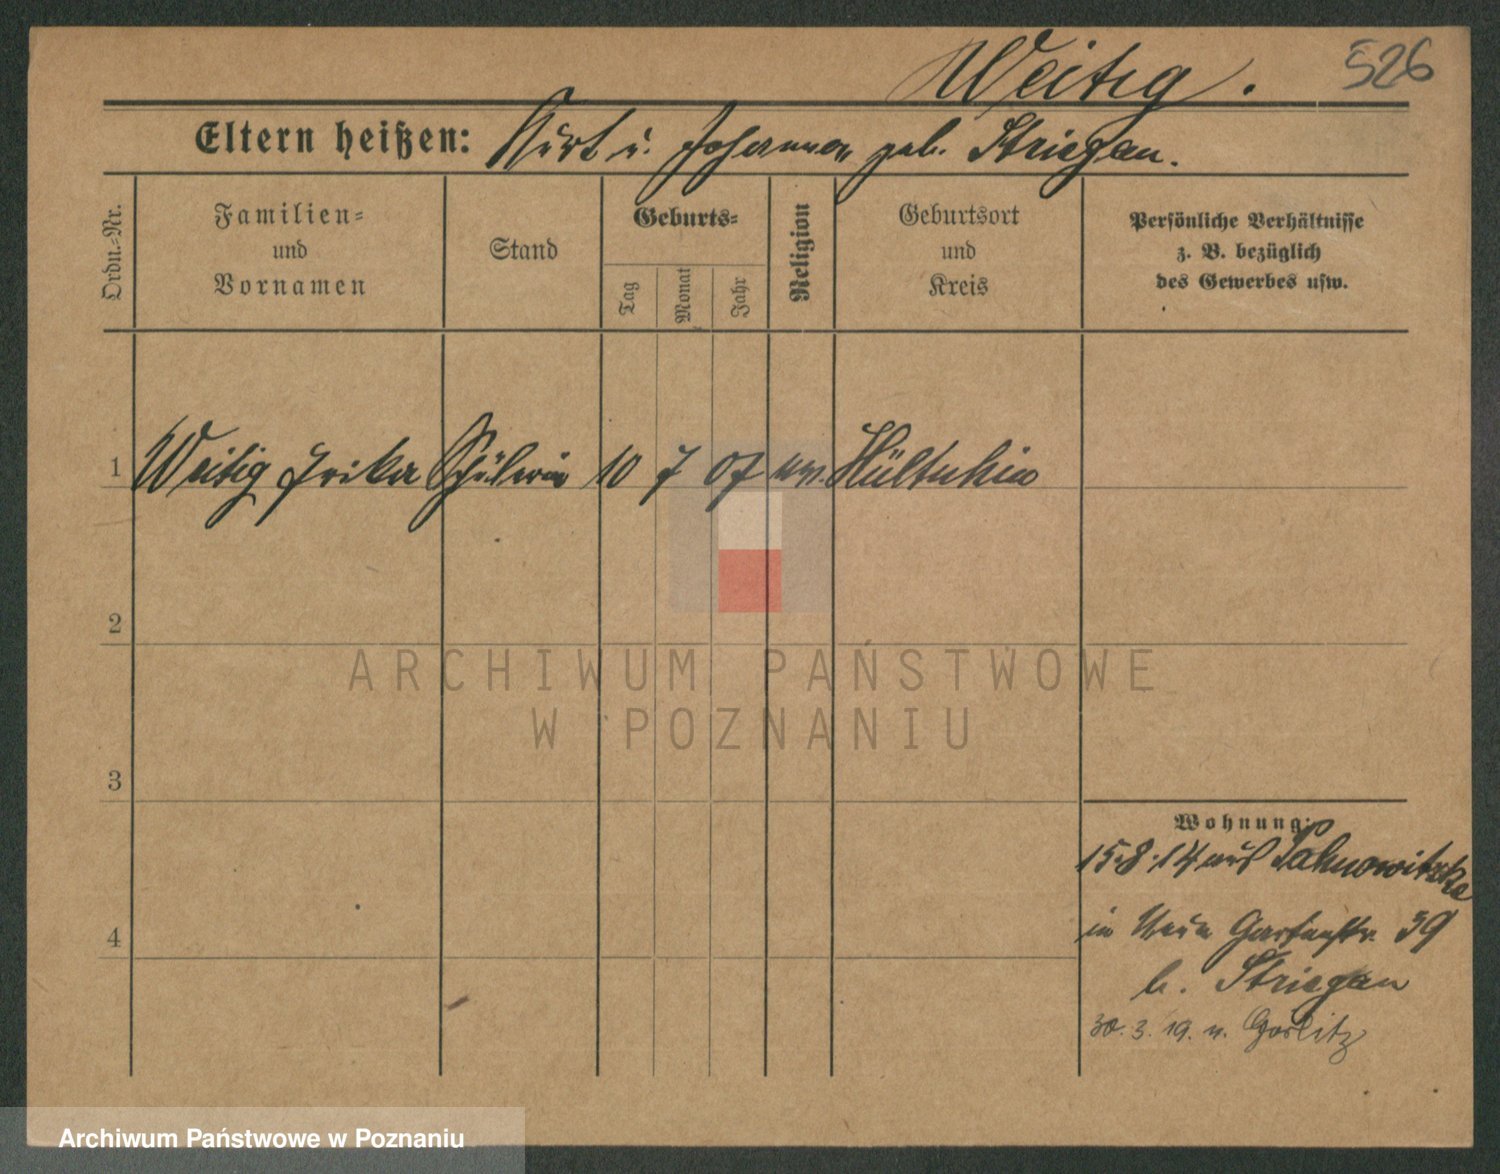 Weitig.
526
Eltern heißen: Kurt u. Johanna geb. Striegan.
Ordn.-Nr.
Familien-
und
Vornamen
Stand
Geburts-
Tag
Monat
Jahr
Religion
Geburtsort
und
Kreis
Persönliche Verhältnisse
z. B. bezüglich
des Gewerbes usw.
1 Weitig Erika Schülerin 10 7 07 Hültschin
2
3
4
Wohnung:
15.8.14 aus
in Gartenstr. 39
b. Striegan
30. 3. 19. n. Görlitz
ARCHIWUM PAŃSTWOWE
W POZNANIU
Archiwum Państwowe w Poznaniu